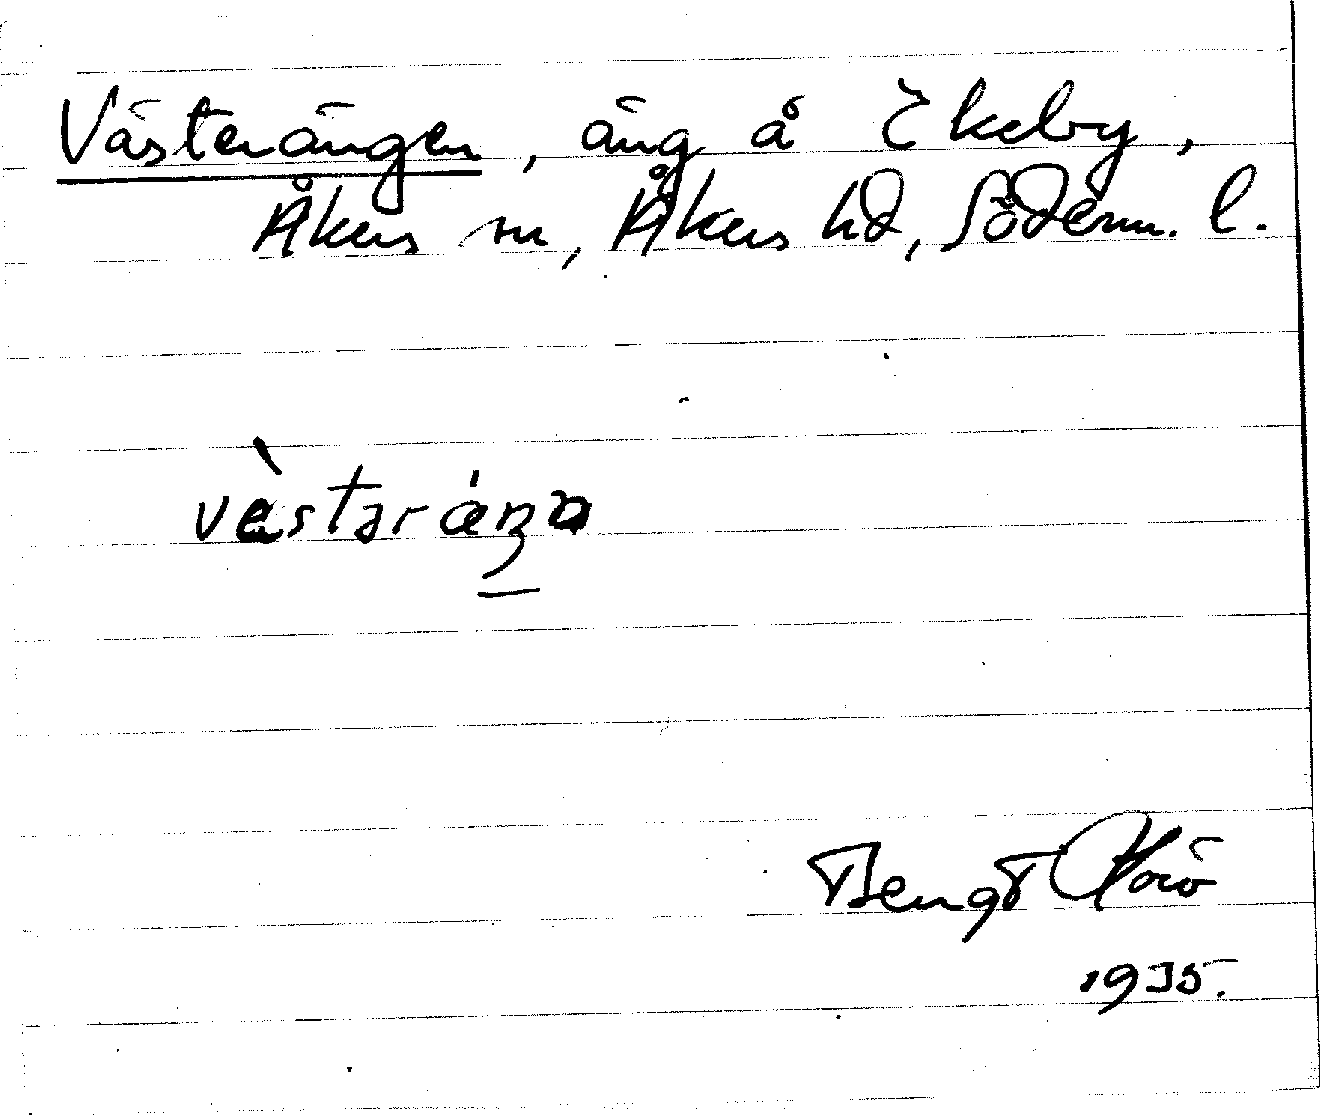 Västerängen, äng å Ekeby,
Åkers sn, Åkers hd, Söderm. l.
vèstəráŋa
Bengt
1935.